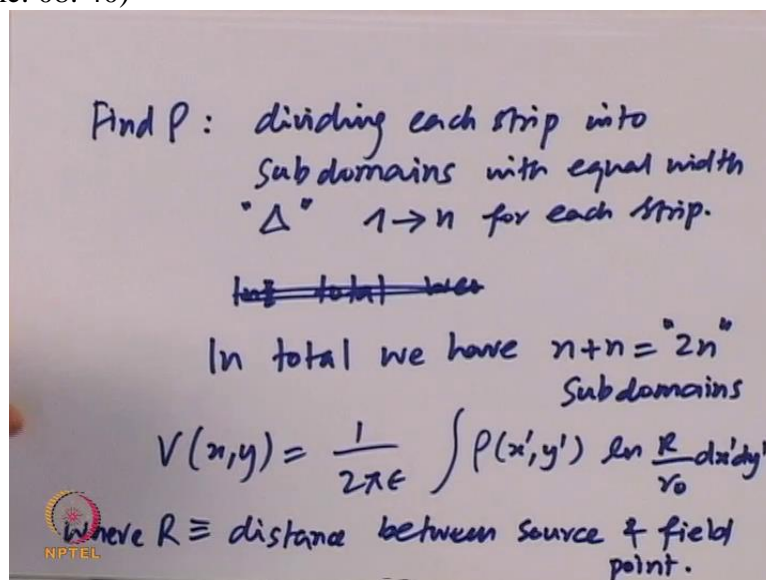 ne: 08: 40)
Find ρ : dividing each strip into
subdomains with equal width
"Δ" 1→n for each strip.
In total we have n+n = "2n"
Subdomains
V(x,y) = 1/2πϵ ∫ρ(x',y') ln R/r₀ dx'dy'
where R ≡ distance between source & field
point.
NPTEL